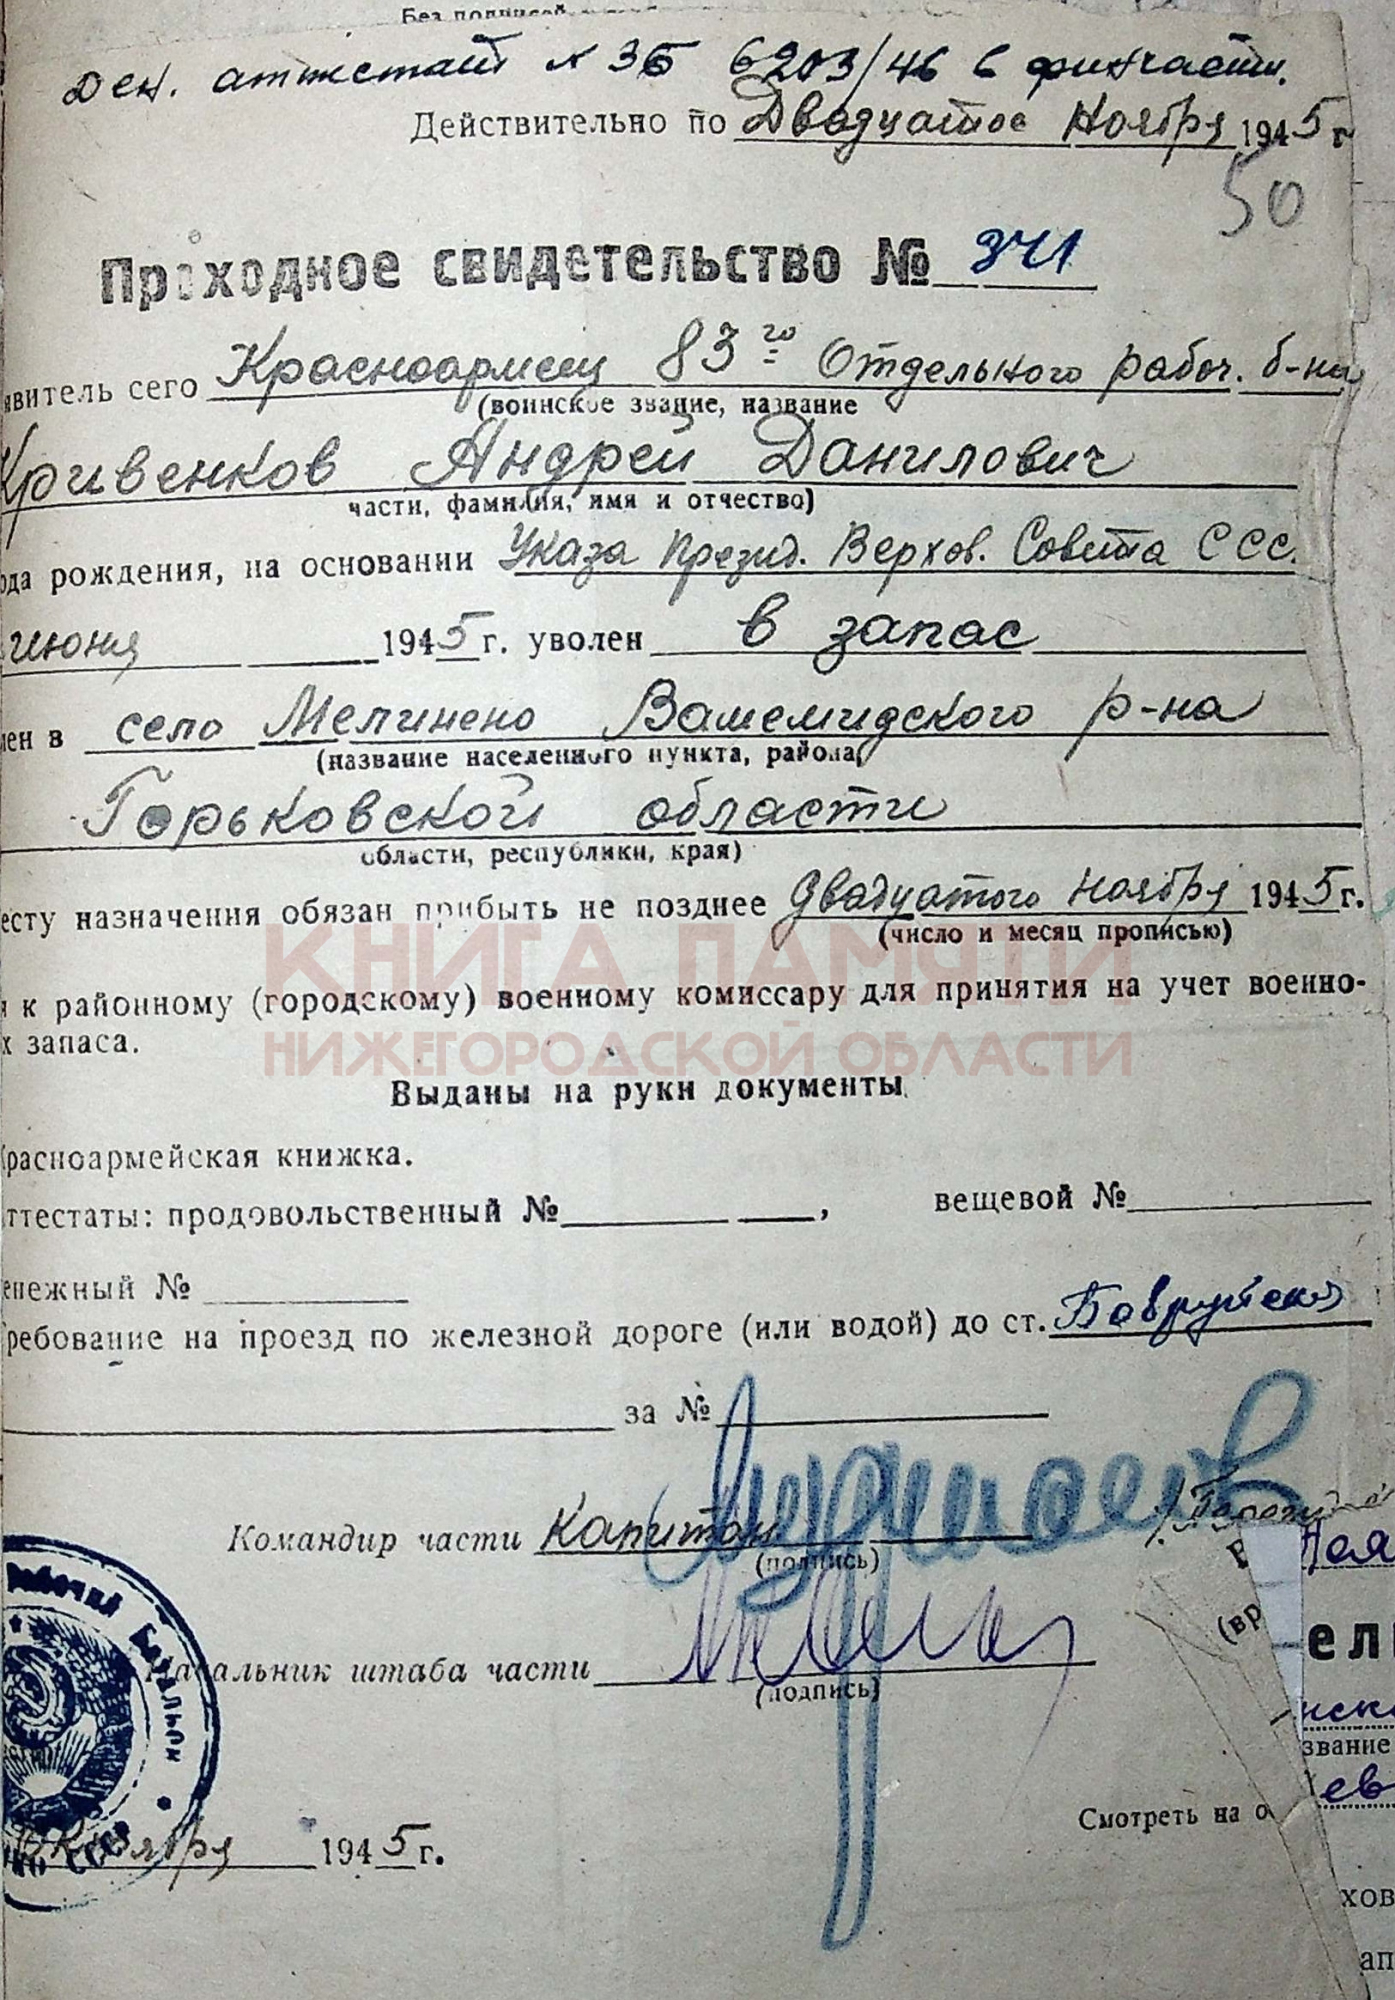 Без подписей
Ден. аттестат № 36 6203/46 в финчасти.
Действительно по Двадцатое Ноября 1945 г
50
Проходное свидетельство № 341
явитель сего Красноармеец 83го Отдельного рабоч. б-на
(воинское звание, название
Кривенков Андрей Данилович
части, фамилия, имя и отчество)
ода рождения, на основании Указа Презид. Верхов. Совета ССС.
июня 1945 г. уволен в запас
лен в село Мелинено р-на
(название населенного пункта, района,
Горьковской области
области, республики, края)
есту назначения обязан прибыть не позднее двадцатого ноября 1945 г.
(число и месяц прописью)
КНИГА ПАМЯТИ
я к районному (городскому) военному комиссару для принятия на учет военно-
х запаса.
НИЖЕГОРОДСКОЙ ОБЛАСТИ
Выданы на руки документы
Красноармейская книжка.
ттестаты: продовольственный № , вещевой №
енежный №
ребование на проезд по железной дороге (или водой) до ст.
за №
Командир части Капитан
(подпись)
Начальник штаба части
(подпись)
рабочий Батальон
НКО СССР
(вр
ели
нско
звание
ев
Смотреть на о
ноября 1945 г.
хов
ап